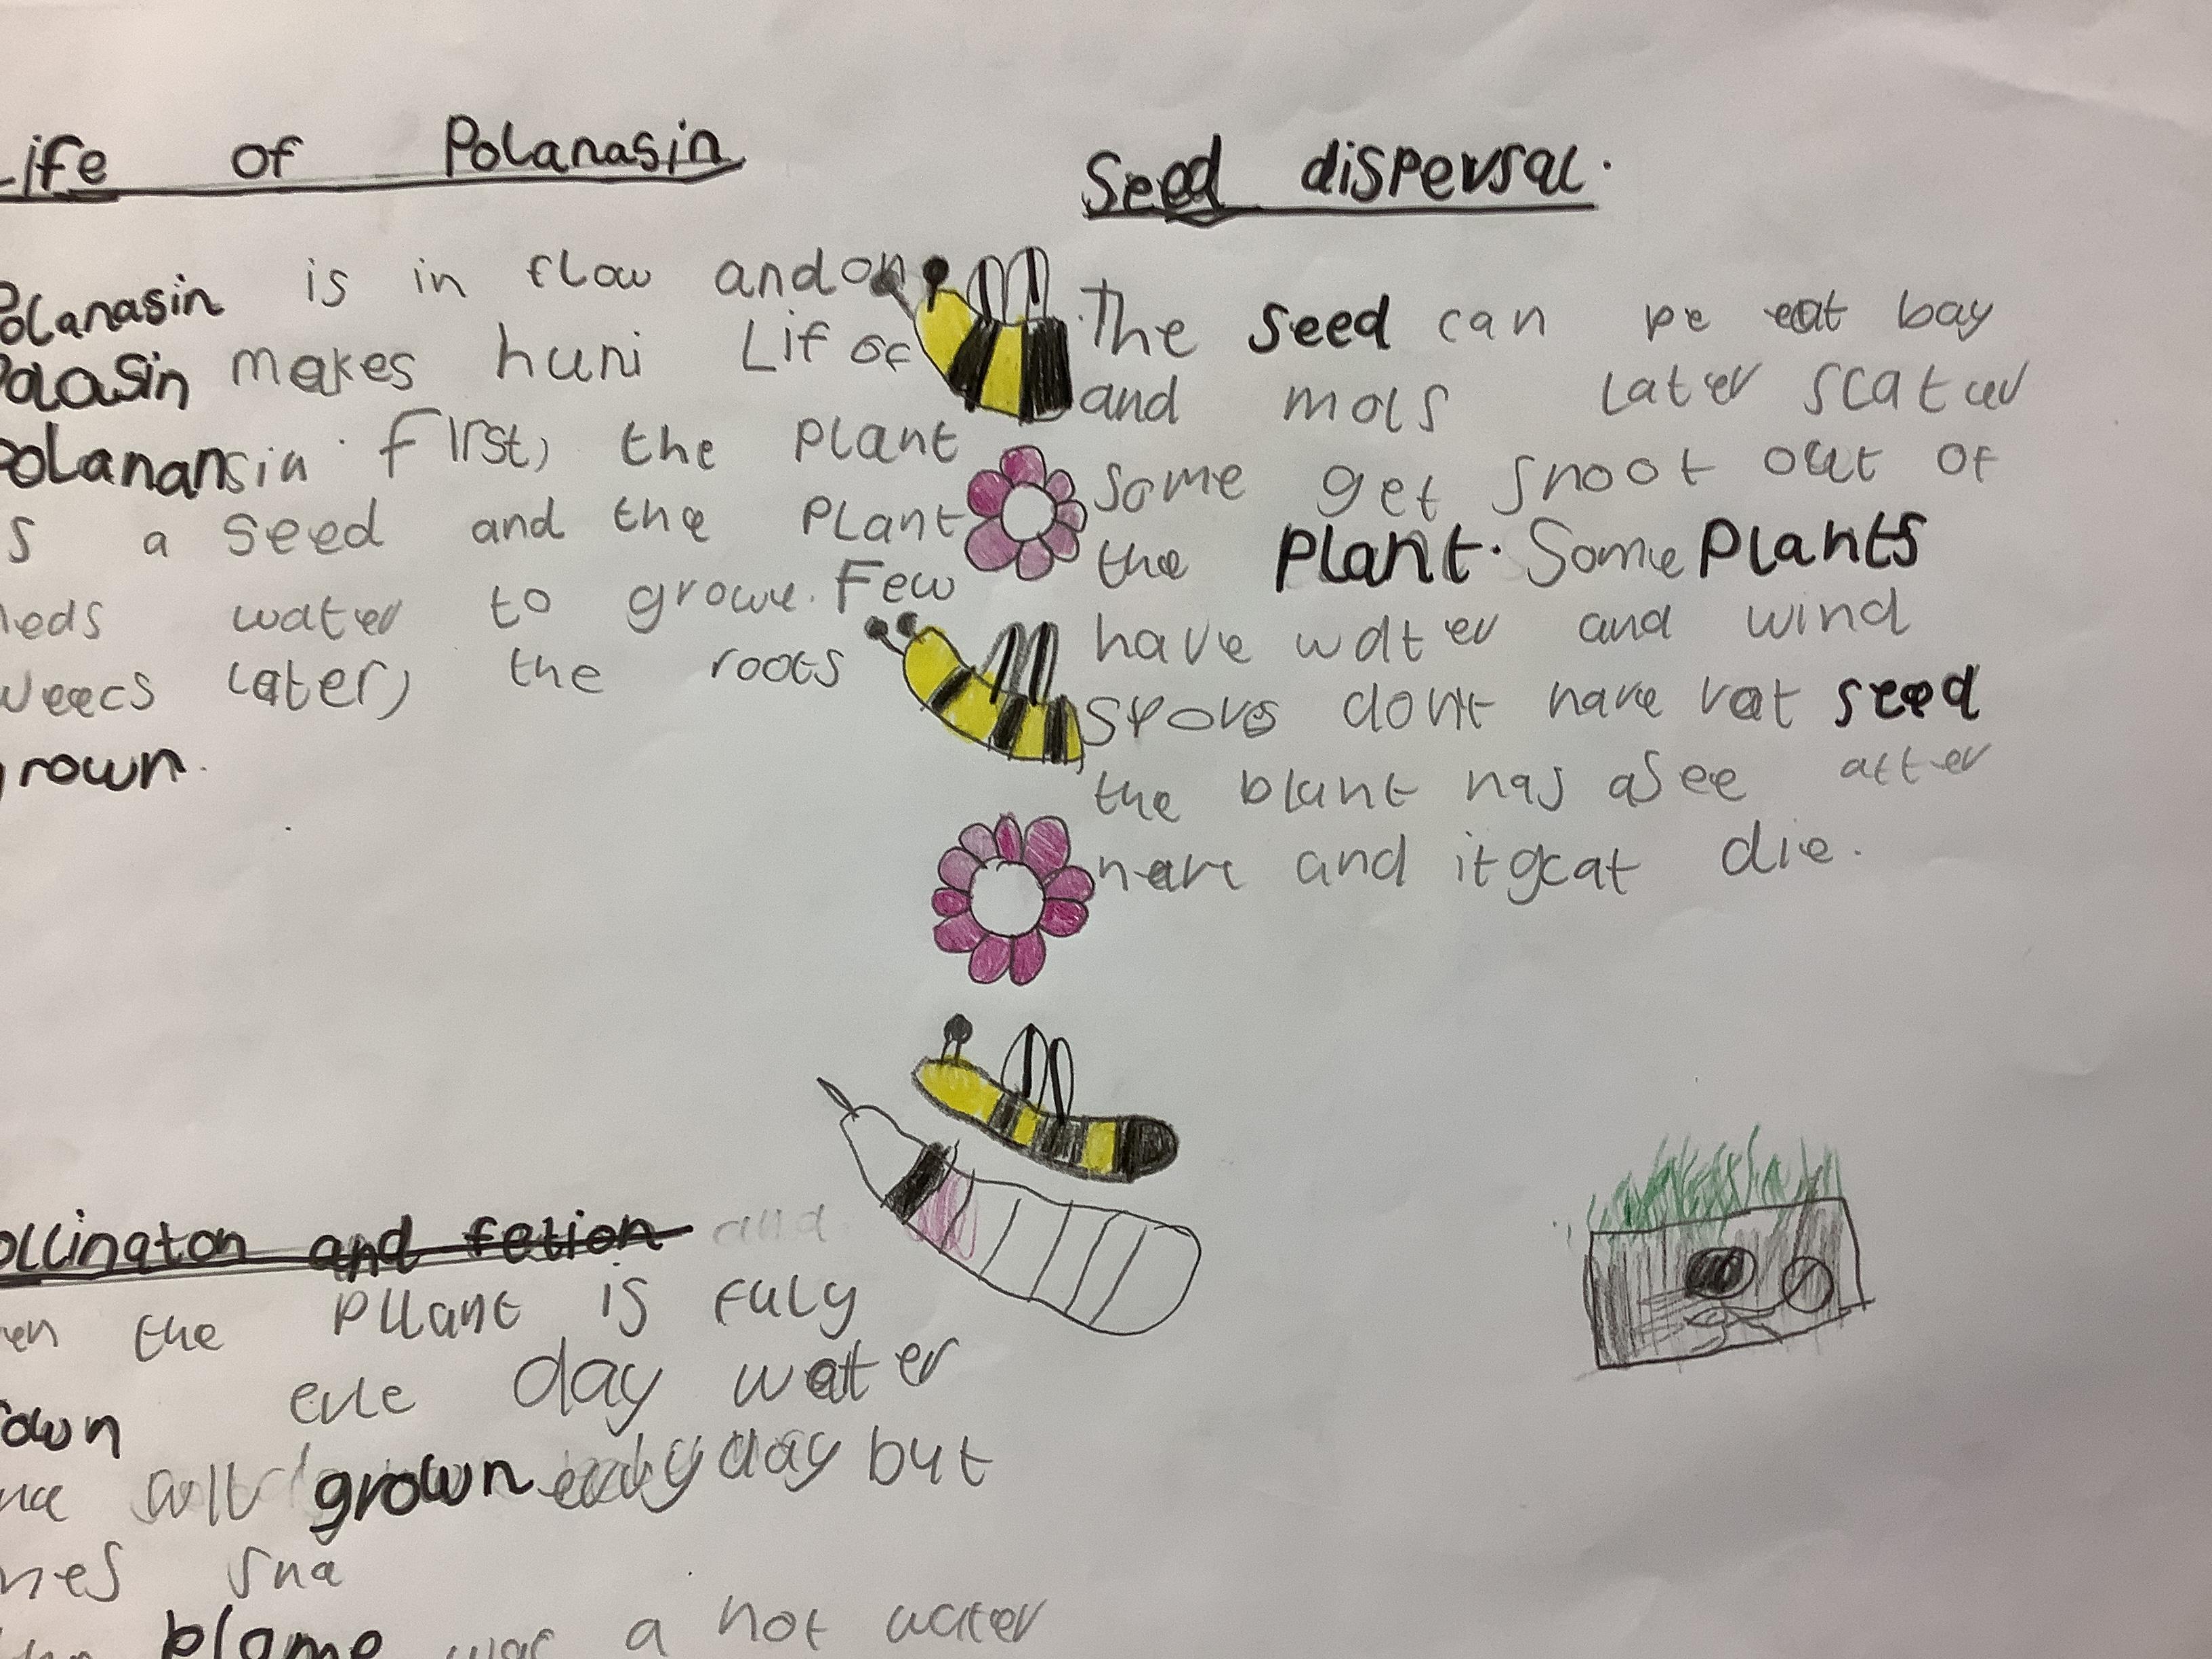 Life of Polanasin
Polanasin is in flow and on
Polasin makes huni Lif of
Polanansin. First, the plant
s a seed and the plant
neds water to growe. Few
Weecs later, the roots
grown.
Seed dispersal.
The seed can pe eat bay
and mols later scater
some get snoot out of
the plant. Some plants
have water and wind
spors dont have vat seed
the blant has a see atter
and it die.
ollington and fetion and
en the pllant is fuly
own eve day water
grown day but
nes sna
blame was a not water